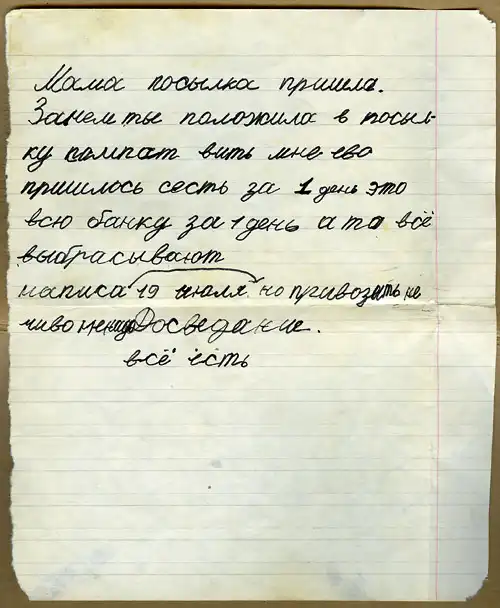 Мама посылка пришла.
Зачем ты положила в посыл-
ку кампат вить мне ево
пришлось сесть за 1 день это
всю банку за 1 день а то всё
выбрасывают
написа 19 июля но привозить не
чиво ненада Досведание.
всё есть